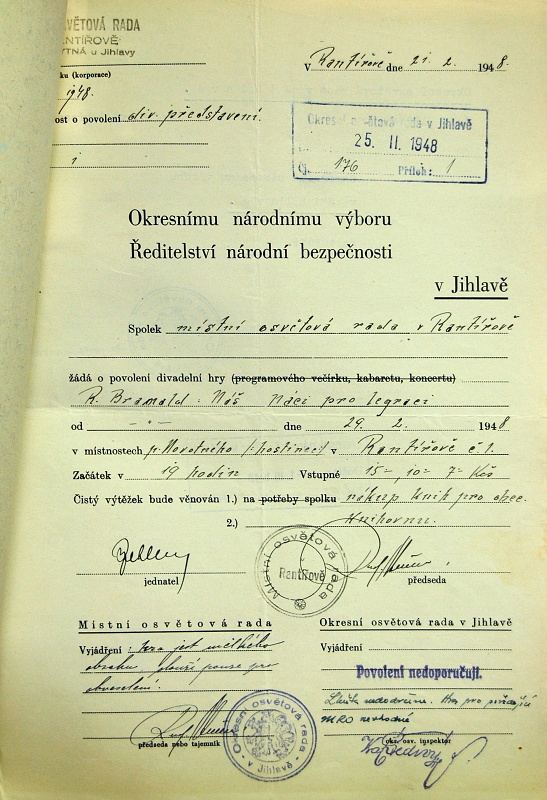 SVĚTOVÁ RADA
ANTÍŘOVĚ
YTNÁ u Jihlavy
ku (korporace)
1948.
V Rantířově dne 21. 2. 1948.
ost o povolení div. představení.
1
Okresní osvětová rada v Jihlavě
25. II. 1948
Čj. 176 Příloh: 1
Okresnímu národnímu výboru
Ředitelství národní bezpečnosti
v Jihlavě
Spolek místní osvětová rada v Rantířově
žádá o povolení divadelní hry (programového večírku, kabaretu, koncertu)
R. Bramald: Náš Náci pro legraci
od - " - dne 29. 2. 1948
v místnostech p. Novotného /: hostinec :/ v Rantířově č 1.
Začátek v 19 hodin Vstupné 15 =, 10 = 7 = Kčs
Čistý výtěžek bude věnován 1.) na potřeby spolku nákup knih pro obec.
2.) knihovnu.
jednatel
předseda
Místní osvětová rada
Rantířově
Místní osvětová rada
Vyjádření: hra jest mělkého
obsahu slouží pouze pro
obveselení.
předseda nebo tajemník
Okresní osvětová rada
v Jihlavě
Okresní osvětová rada v Jihlavě
Vyjádření
Povolení nedoporučuji.
Lhůta nedodržena. Hra pro pořádající
MRO nevhodná
okr. osv. inspektor